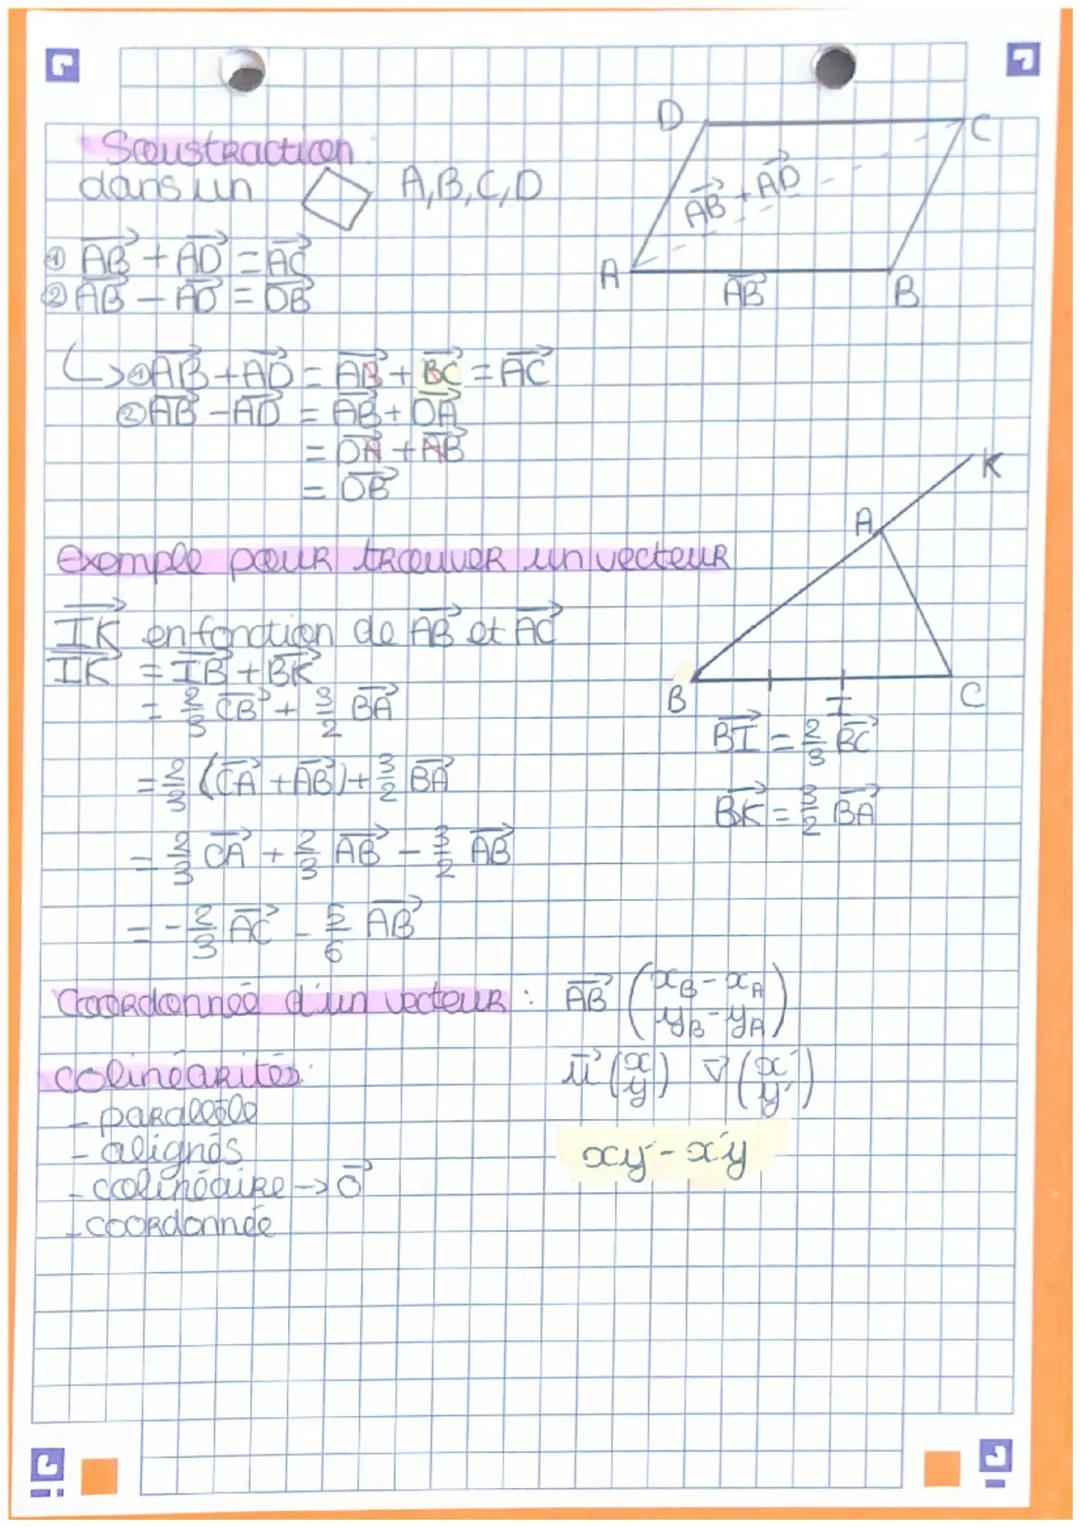 Soustraction
dans un A, B, C, D
① AB→ + AD→ = AC→
② AB→ − AD→ = DB→
↳ ① AB→ + AD→ = AB→ + BC→ = AC→
② AB→ − AD→ = AB→ + DA→
= DA→ + AB→
= DB→
D
C
AB→ + AD→
A
AB→
B
exemple pour trouver un vecteur
IK→ en fonction de AB→ et AC→
IK→ = IB→ + BK→
= 2/3 CB→ + 3/2 BA→
= 2/3 (CA→ + AB→) + 3/2 BA→
= 2/3 CA→ + 2/3 AB→ − 3/2 AB→
= - 2/3 AC→ − 5/6 AB→
K
A
B
I
C
BI→ = 2/3 BC→
BK→ = 3/2 BA→
Coordonnée d'un vecteur : AB→ (xB - xA
yB - yA)
colinéarités:
u→ (x y) v→ (x' y')
- parallèle
- alignés
xy' - x'y
- colinéaire → 0→
- coordonnée